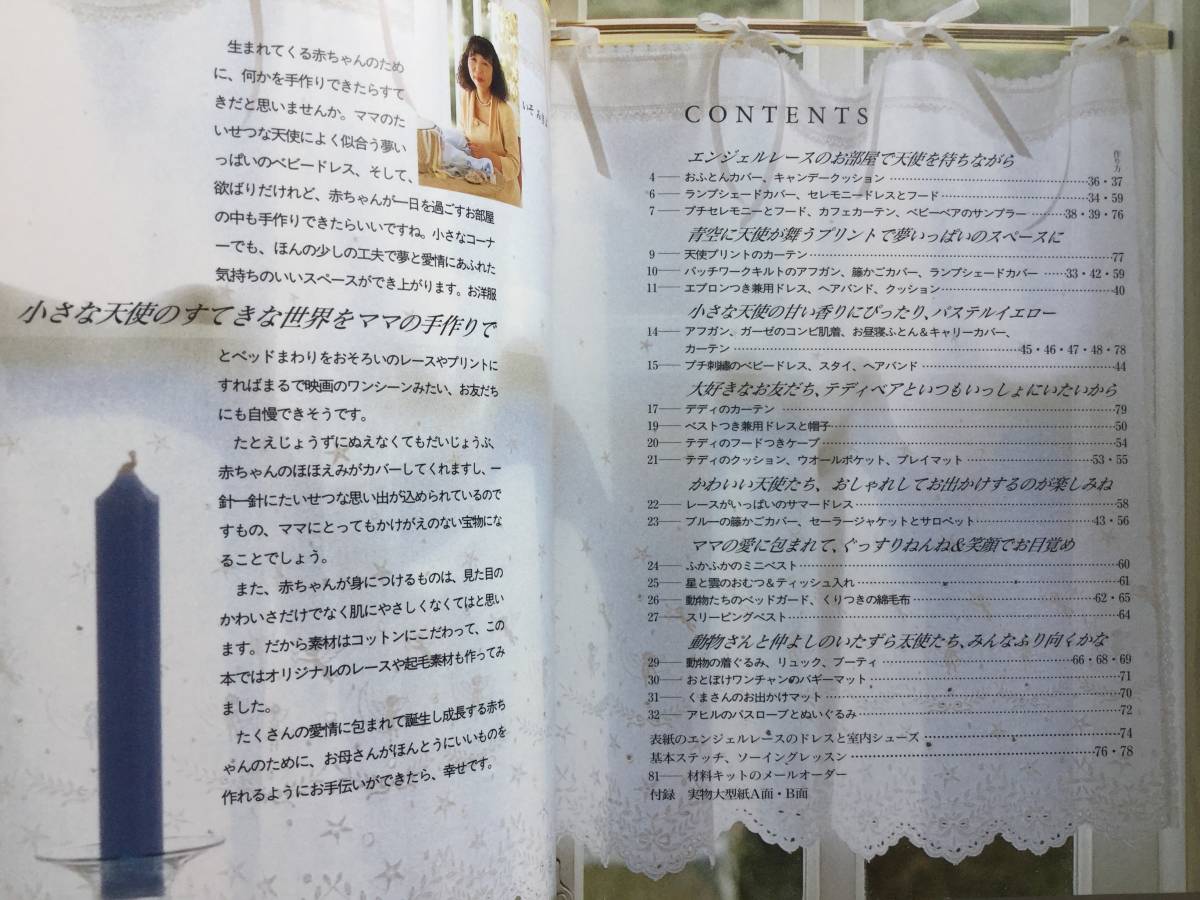 生まれてくる赤ちゃんのため
に、何かを手作りできたらすて
きだと思いませんか。ママのた
いせつな天使によく似合う夢い
っぱいのベビードレス、そして、
欲ばりだけれど、赤ちゃんが一日を過ごすお部屋
の中も手作りできたらいいですね。小さなコーナ
ーでも、ほんの少しの工夫で夢と愛情にあふれた
気持ちのいいスペースができ上がります。お洋服
小さな天使のすてきな世界をママの手作りで
とベッドまわりをおそろいのレースやプリントに
すればまるで映画のワンシーンみたい、お友だち
にも自慢できそうです。
たとえじょうずにぬえなくてもだいじょうぶ、
赤ちゃんのほほえみがカバーしてくれますし、一
針一針にたいせつな思い出が込められているので
すもの、ママにとってもかけがえのない宝物にな
ることでしょう。
また、赤ちゃんが身につけるものは、見た目の
かわいさだけでなく肌にやさしくなくてはと思い
ます。だから素材はコットンにこだわって、この
本ではオリジナルのレースや起毛素材も作ってみ
ました。
たくさんの愛情に包まれて誕生し成長する赤ち
ゃんのために、お母さんがほんとうにいいものを
作れるようにお手伝いができたら、幸せです。
CONTENTS
作り方
エンジェルレースのお部屋で天使を待ちながら
4──おふとんカバー、キャンデークッション……36・37
6──ランプシェードカバー、セレモニードレスとフード……34・59
7──プチセレモニーとフード、カフェカーテン、ベビーベアのサンプラー……38・39・76
青空に天使が舞うプリントで夢いっぱいのスペースに
9──天使プリントのカーテン……77
10──パッチワークキルトのアフガン、籐かごカバー、ランプシェードカバー……33・42・59
11──エプロンつき兼用ドレス、ヘアバンド、クッション……40
小さな天使の甘い香りにぴったり、パステルイエロー
14──アフガン、ガーゼのコンビ肌着、お昼寝ふとん＆キャリーカバー、
カーテン……45・46・47・48・78
15──プチ刺繡のベビードレス、スタイ、ヘアバンド……44
大好きなお友だち、テディベアといつもいっしょにいたいから
17──テディのカーテン……79
19──ベストつき兼用ドレスと帽子……50
20──テディのフードつきケープ……54
21──テディのクッション、ウオールポケット、プレイマット……53・55
かわいい天使たち、おしゃれしてお出かけするのが楽しみね
22──レースがいっぱいのサマードレス……58
23──ブルーの籐かごカバー、セーラージャケットとサロペット……43・56
ママの愛に包まれて、ぐっすりねんね＆笑顔でお目覚め
24──ふかふかのミニベスト……60
25──星と雲のおむつ＆ティッシュ入れ……61
26──動物たちのベッドガード、くりつきの綿毛布……62・65
27──スリーピングベスト……64
動物さんと仲よしのいたずら天使たち、みんなふり向くかな
29──動物の着ぐるみ、リュック、ブーティ……66・68・69
30──おとぼけワンチャンのバギーマット……71
31──くまさんのお出かけマット……70
32──アヒルのバスローブとぬいぐるみ……72
表紙のエンジェルレースのドレスと室内シューズ……74
基本ステッチ、ソーイングレッスン……76・78
81──材料キットのメールオーダー
付録 実物大型紙A面・B面